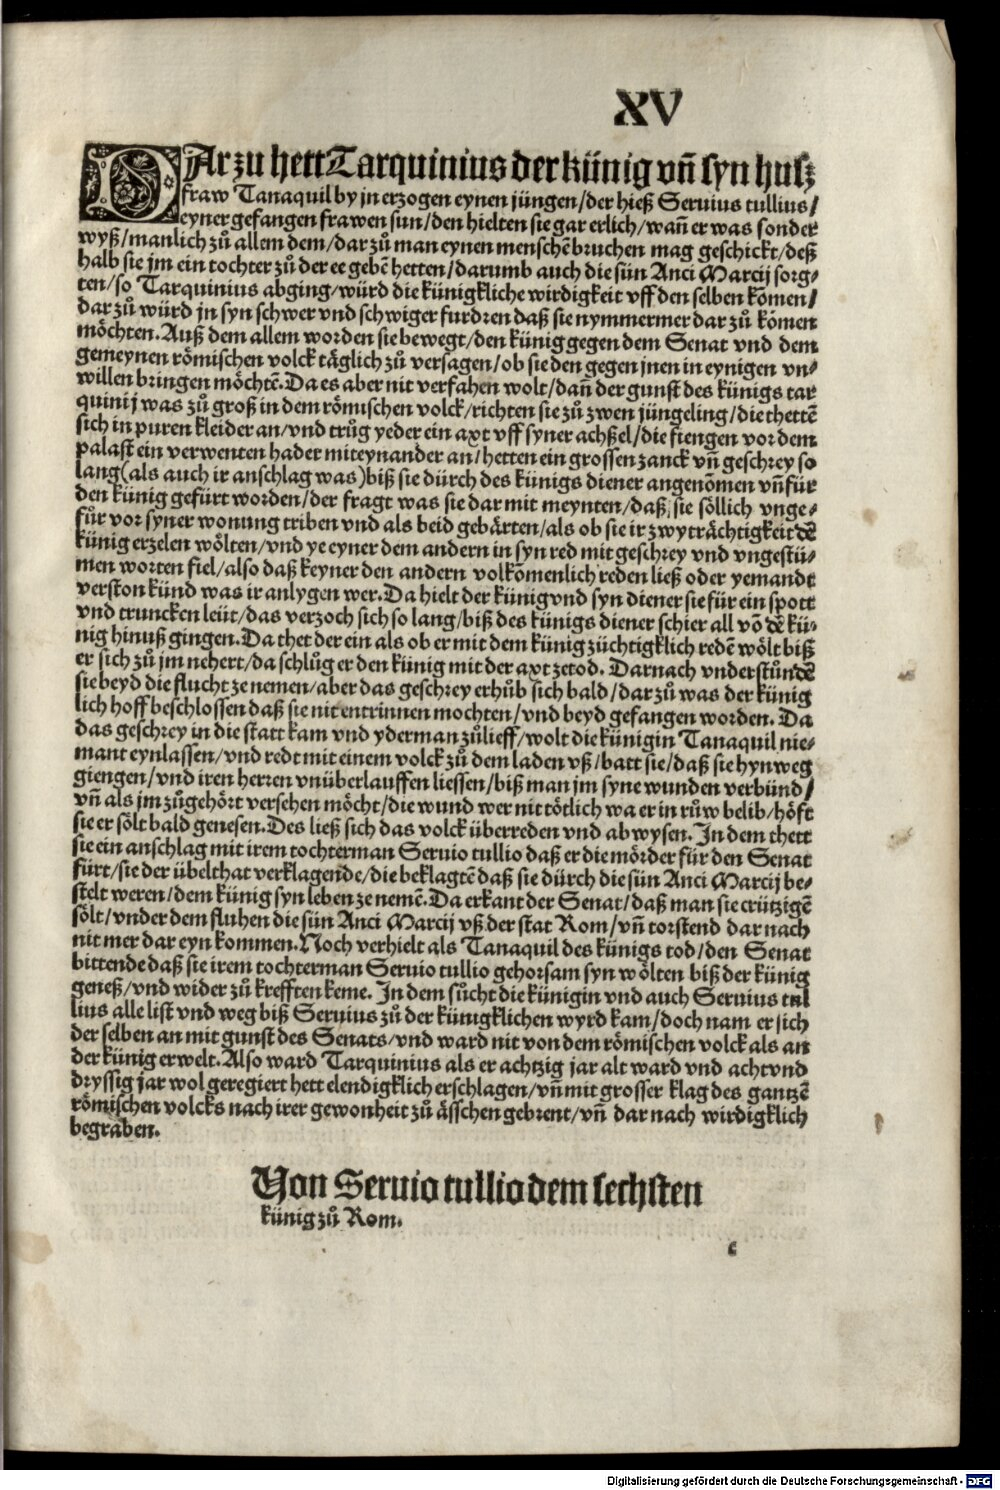 XV
DAr zu hett Tarquinius der künig vn̄ syn husz
fraw Tanaquil by jn erzogen eynen jüngen/der hieß Seruius tullius/
eyner gefangen frawen sun/den hielten sie gar erlich/wan̄ er was sonder
wyß/manlich zů allem dem/dar zů man eynen menschē bruchen mag geschickt/deß
halb sie jm ein tochter zů der ee gebē hetten/darumb auch die sün Anci Marcij sorg⸗
ten/so Tarquinius abging/würd die künigkliche wirdigkeit vff den selben kōmen/
dar zů würd jn syn schwer vnd schwiger furdren daß sie nymmermer dar zů kōmen
möchten. Auß dem allem worden sie bewegt/den künig gegen dem Senat vnd dem
gemeynen römischen volck täglich zů versagen/ob sie den gegen jnen in eynigen vn⸗
willen bringen möchtē. Da es aber nit verfahen wolt/dan̄ der gunst des künigs tar
quinij was zů groß in dem römischen volck/richten sie zů zwen jüngeling/die thettē
sich in puren kleider an/vnd trůg yeder ein axt vff syner achßel/die fiengen vor dem
palast ein verwenten hader miteynander an/hetten ein grossen zanck vn̄ geschrey so
lang(als auch ir anschlag was)biß sie dürch des künigs diener angenōmen vn̄ für
den künig gefürt worden/der fragt was sie dar mit meynten/daß sie söllich vnge⸗
fůr vor syner wonung triben vnd als beid gebärten/als ob sie ir zwyträchtigkeit dē
künig erzelen wölten/vnd ye eyner dem andern in syn red mit geschrey vnd vngestü⸗
men worten fiel/also daß keyner den andern volkōmenlich reden ließ oder yemandt
verston künd was ir anlygen wer. Da hielt der künig vnd syn diener sie für ein spott
vnd truncken leüt/das verzoch sich so lang/biß des künigs diener schier all vō dē kü⸗
nig hinuß gingen. Da thet der ein als ob er mit dem künig züchtigklich redē wölt biß
er sich zů jm nehert/da schlůg er den künig mit der axt zetod. Darnach vnderstůndē
sie beyd die flucht ze nemen/aber das geschrey erhůb sich bald/dar zů was der künig
lich hoff beschlossen daß sie nit entrinnen mochten/vnd beyd gefangen worden. Da
das geschrey in die statt kam vnd yderman zůlieff/wolt die künigin Tanaquil nie⸗
mant eynlassen/vnd redt mit einem volck zů dem laden vß/batt sie/daß sie hynweg
giengen/vnd iren herren vnüberlauffen liessen/biß man jm syne wunden verbünd/
vn̄ als jm zůgehört versehen möcht/die wund wer nit tötlich wa er in růw belib/höft
sie er sölt bald genesen. Des ließ sich das volck überreden vnd abwysen. In dem thett
sie ein anschlag mit irem tochterman Seruio tullio daß er die mörder für den Senat
fürt/sie der übelthat verklagende/die beklagtē daß sie dürch die sün Anci Marcij be⸗
stelt weren/dem künig syn leben ze nemē. Da erkant der Senat/daß man sie crützigē
sölt/vnder dem fluhen die sün Anci Marcij vß der stat Rom/vn̄ torstend dar nach
nit mer dar eyn kommen. Noch verhielt als Tanaquil des künigs tod/den Senat
bittende daß sie irem tochterman Seruio tullio gehorsam syn wölten biß der künig
geneß/vnd wider zů krefften keme. In dem sůcht die künigin vnd auch Seruius tul
lius alle list vnd weg biß Seruius zů der künigklichen wyrd kam/doch nam er sich
der selben an mit gunst des Senats/vnd ward nit von dem römischen volck als an
der künig erwelt. Also ward Tarquinius als er achtzig jar alt ward vnd acht vnd
dryssig jar wol geregiert hett elendigklich erschlagen/vn̄ mit grosser klag des gantzē
römischen volcks nach irer gewonheit zů ässchen gebrent/vn̄ dar nach wirdigklich
begraben.
Von Seruio tullio dem sechsten
künig zů Rom.
c
Digitalisierung gefördert durch die Deutsche Forschungsgemeinschaft - DFG